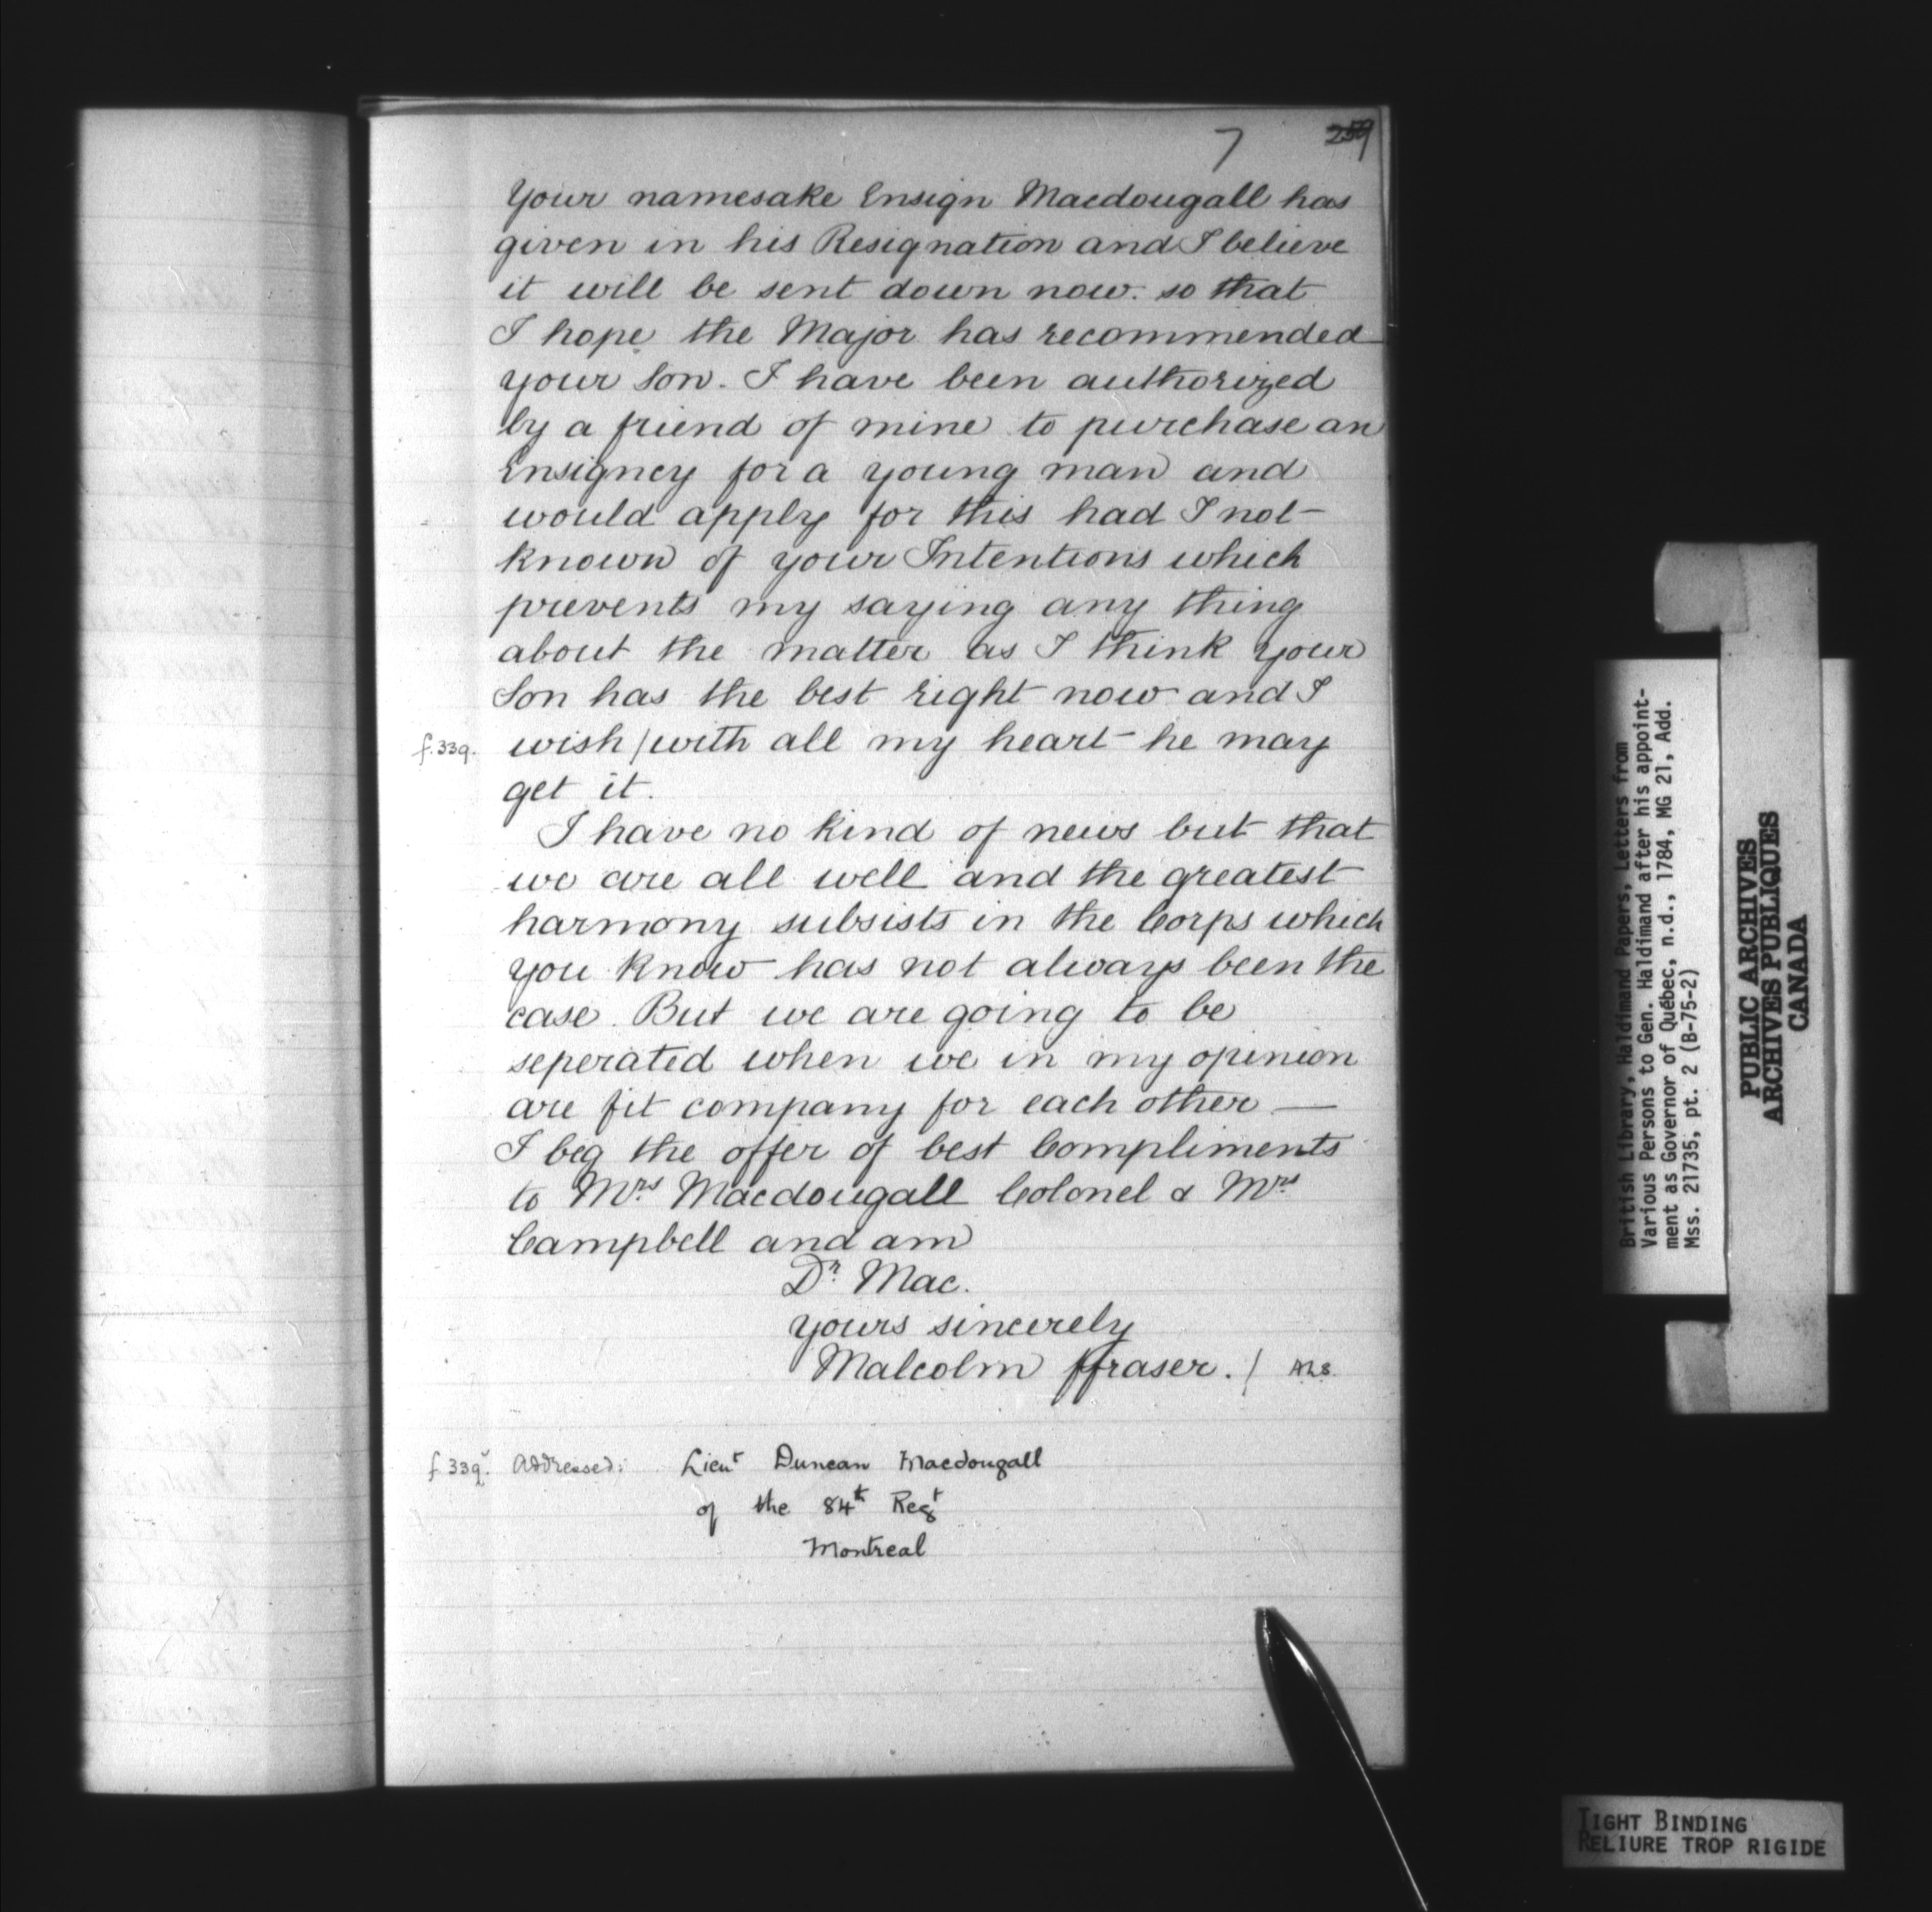 7 259
Your namesake Ensign Macdougall has
given in his Resignation and I believe
it will be sent down now. so that
I hope the Major has recommended
your Son. I have been authorized
by a friend of mine to purchase an
Ensigncy for a young man and
would apply for this had I not
known of your Intentions which
prevents my saying any thing
about the matter as I think your
Son has the best right now and I
f.339. wish / with all my heart he may
get it.
I have no kind of news but that
we are all well and the greatest
harmony subsists in the Corps which
you know has not always been the
case. But we are going to be
seperated when we in my opinion
are fit company for each other —
I beg the offer of best Compliments
to Mrs Macdougall Colonel & Mrs
Campbell and am
Dr. Mac.
yours sincerely
Malcolm ffraser. /
f.339v. Addressed: Lieut Duncan Macdougall
of the 84th Regt
Montreal
British Library, Haldimand Papers, Letters from
Various Persons to Gen. Haldimand after his appoint-
ment as Governor of Québec, n.d., 1784, MG 21, Add.
Mss. 21735, pt. 2 (B-75-2)
PUBLIC ARCHIVES
ARCHIVES PUBLIQUES
CANADA
TIGHT BINDING
RELIURE TROP RIGIDE